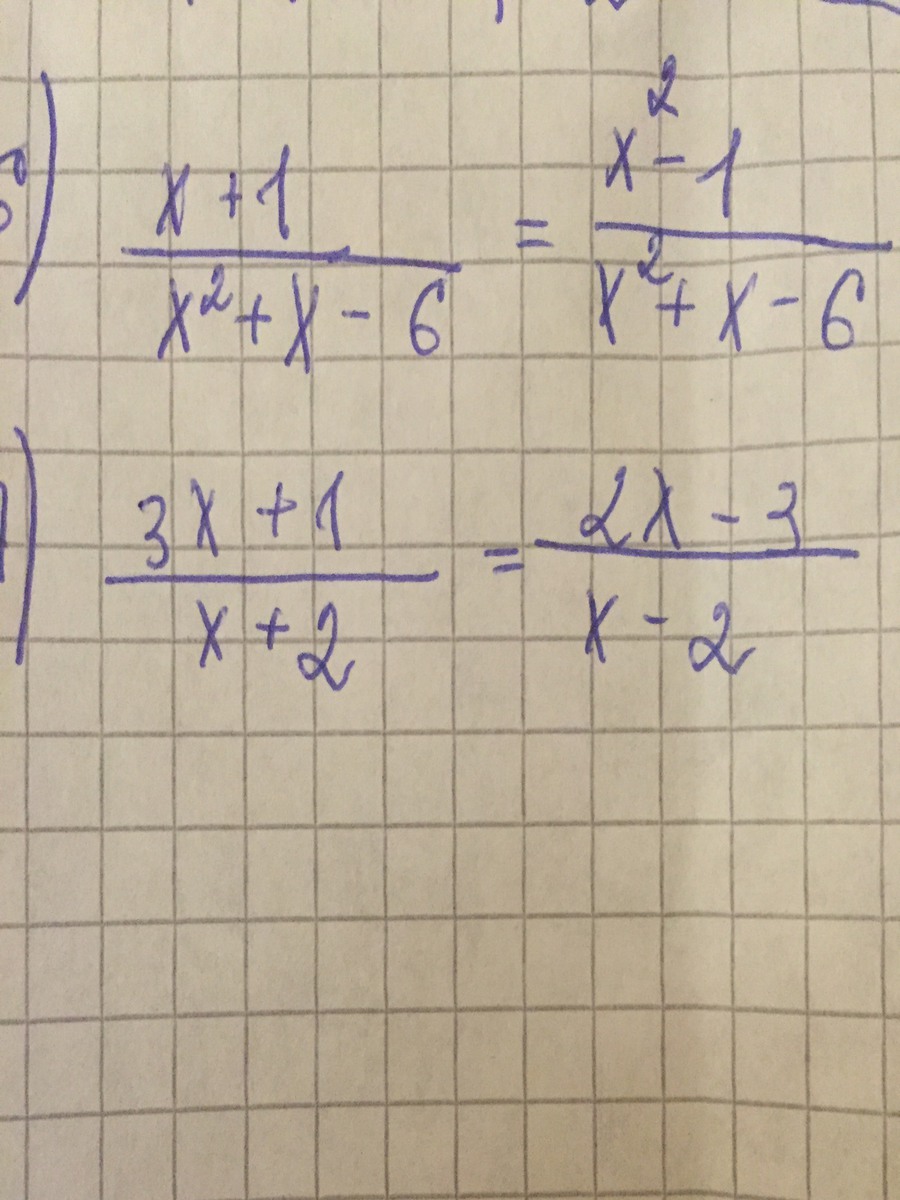 б) x + 1 / x² + x - 6 = x² - 1 / x² + x - 6
) 3x + 1 / x + 2 = 2x - 3 / x - 2